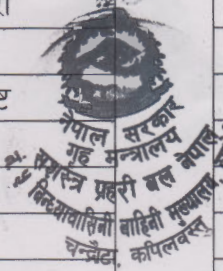 नेपाल सरकार
गृह मन्त्रालय
सशस्त्र प्रहरी बल नेपाल
नं. ५ बिन्ध्यवासिनी बाहिनी मुख्यालय
चन्द्रौटा, कपिलवस्तु